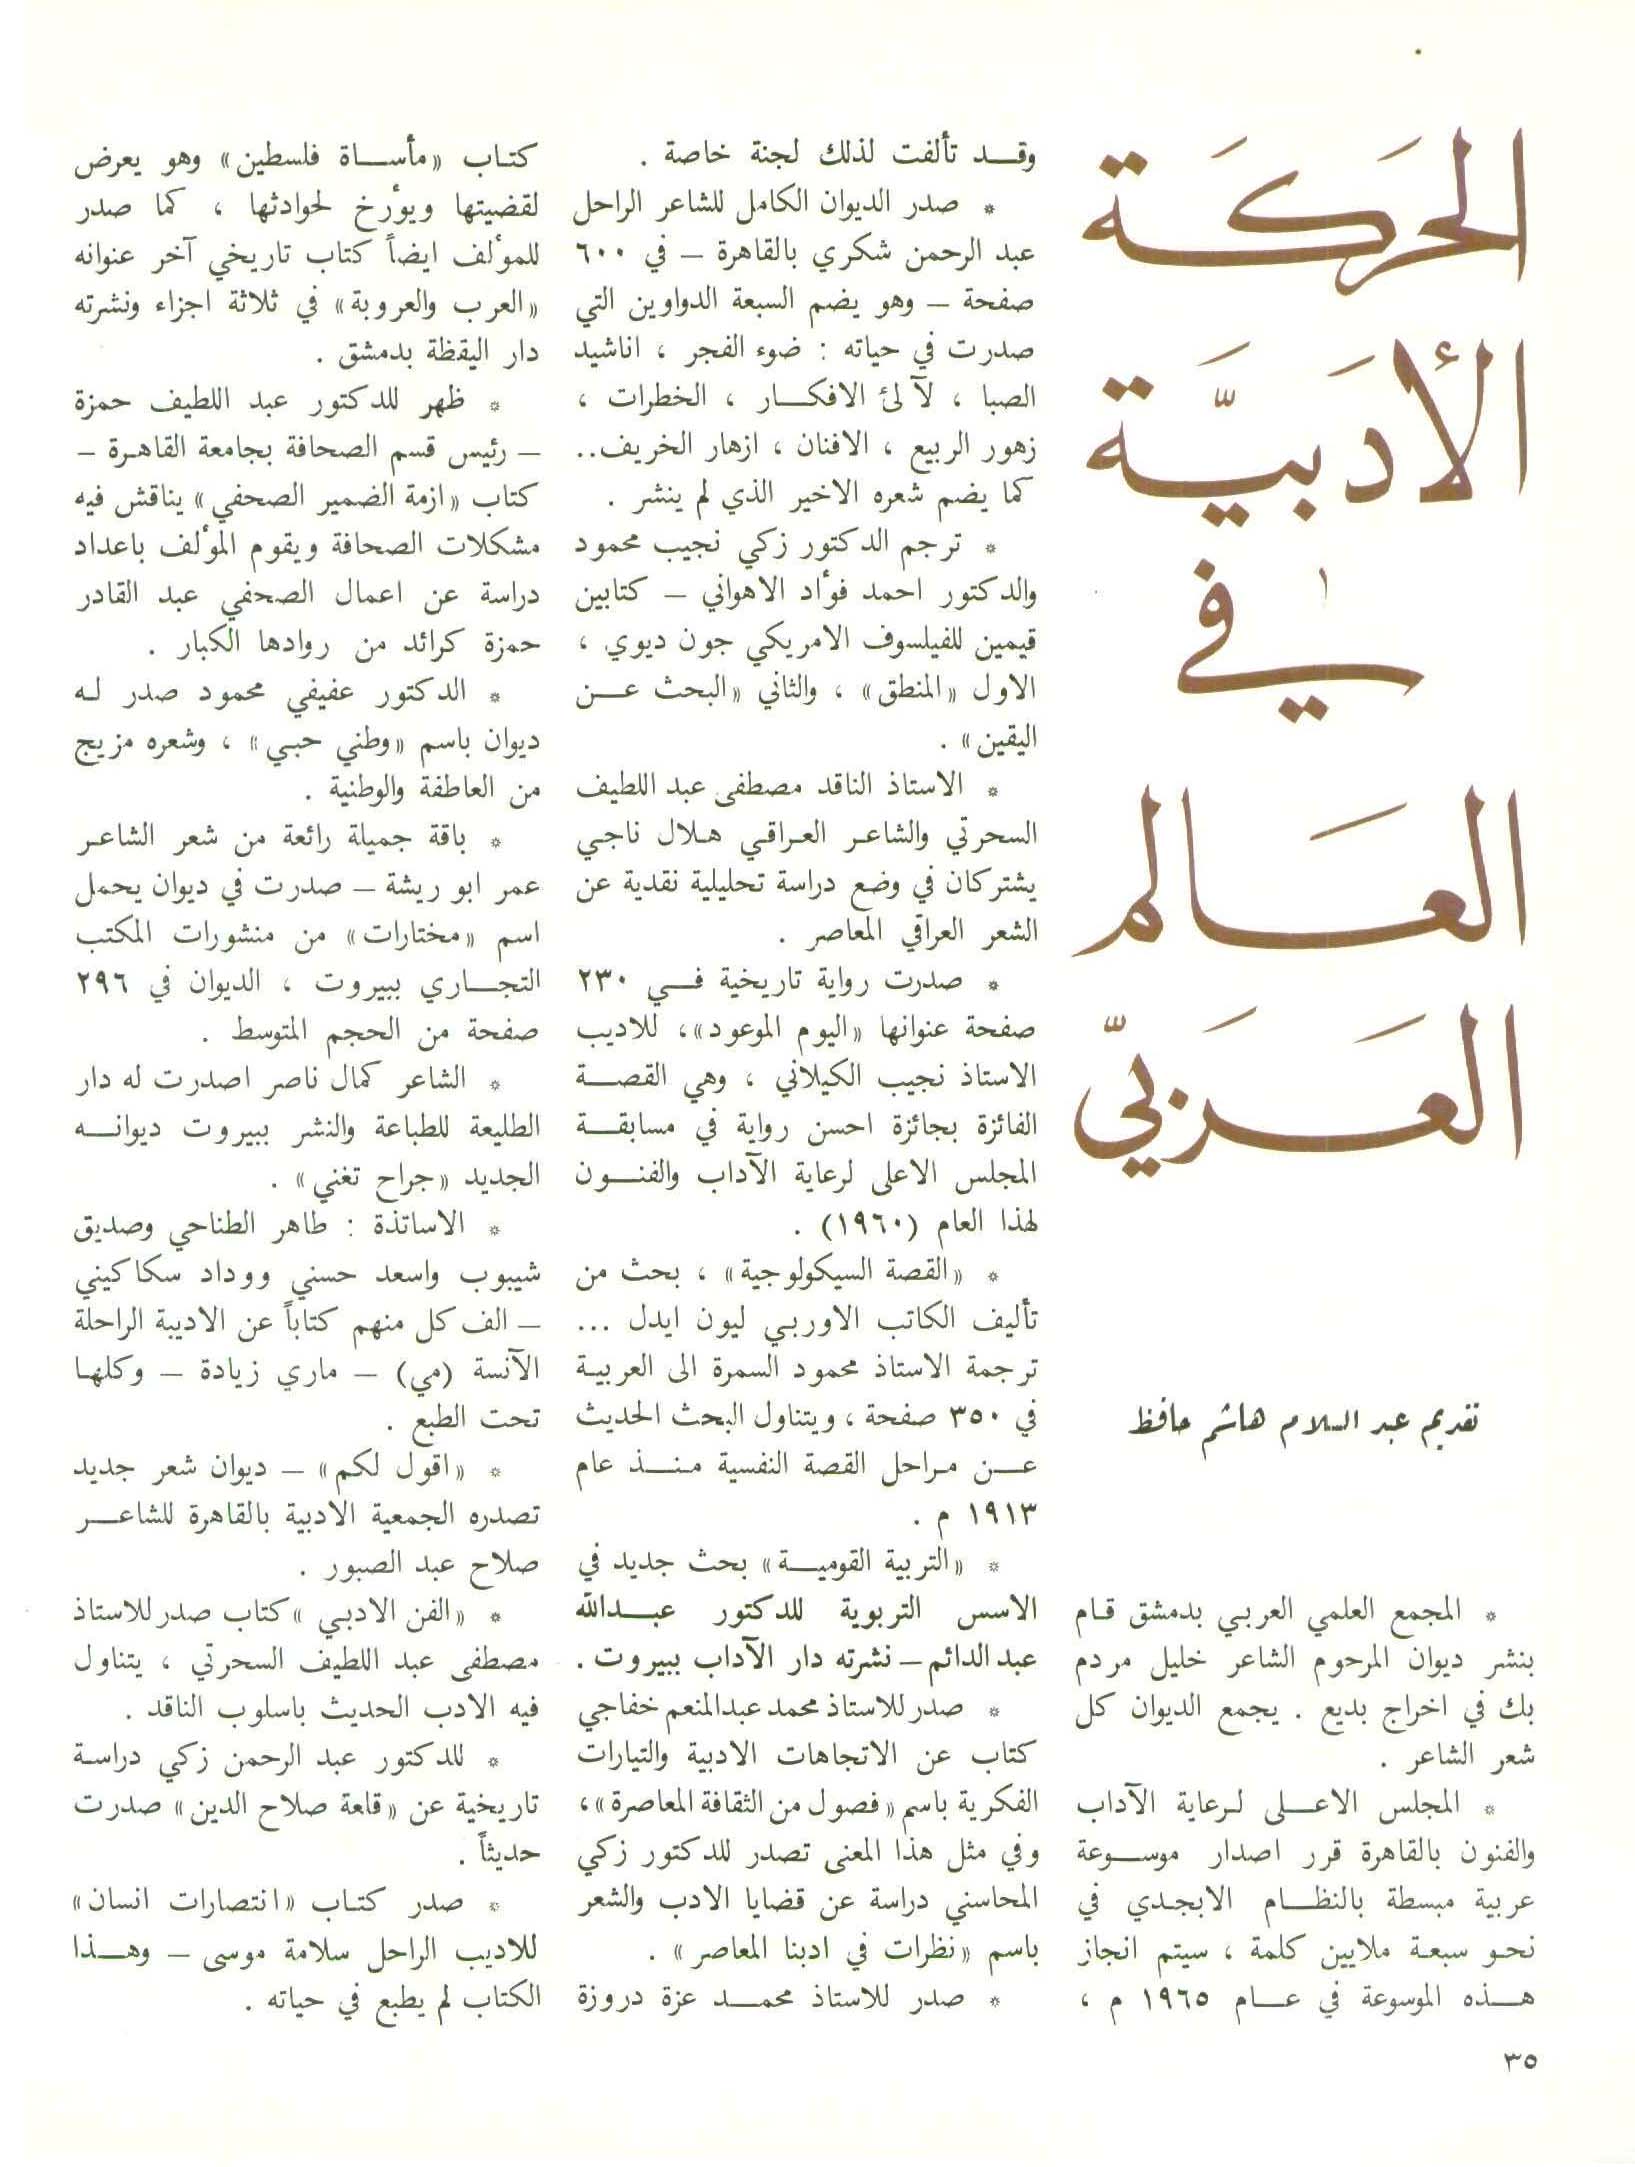 الحركة
الأدبيّة
في
العالم
العربيّ
تقديم عبد السلام هاشم حافظ
* المجمع العلمي العربي بدمشق قام
بنشر ديوان المرحوم الشاعر خليل مردم
بك في اخراج بديع . يجمع الديوان كل
شعر الشاعر .
* المجلس الاعلى لرعاية الآداب
والفنون بالقاهرة قرر اصدار موسوعة
عربية مبسطة بالنظام الابجدي في
نحو سبعة ملايين كلمة ، سيتم انجاز
هذه الموسوعة في عام ١٩٦٥ م ،
وقد تألفت لذلك لجنة خاصة .
* صدر الديوان الكامل للشاعر الراحل
عبد الرحمن شكري بالقاهرة – في ٦٠٠
صفحة – وهو يضم السبعة الدواوين التي
صدرت في حياته : ضوء الفجر ، اناشيد
الصبا ، لآلئ الافكار ، الخطرات ،
زهور الربيع ، الافنان ، ازهار الخريف..
كما يضم شعره الاخير الذي لم ينشر .
* ترجم الدكتور زكي نجيب محمود
والدكتور احمد فؤاد الاهواني – كتابين
قيمين للفيلسوف الامريكي جون ديوي ،
الاول «المنطق» ، والثاني «البحث عن
اليقين» .
* الاستاذ الناقد مصطفى عبد اللطيف
السحرتي والشاعر العراقي هلال ناجي
يشتركان في وضع دراسة تحليلية نقدية عن
الشعر العراقي المعاصر .
* صدرت رواية تاريخية في ٢٣٠
صفحة عنوانها «اليوم الموعود»، للاديب
الاستاذ نجيب الكيلاني ، وهي القصة
الفائزة بجائزة احسن رواية في مسابقة
المجلس الاعلى لرعاية الآداب والفنون
لهذا العام (١٩٦٠) .
* «القصة السيكولوجية» ، بحث من
تأليف الكاتب الاوربي ليون ايدل ...
ترجمة الاستاذ محمود السمرة الى العربية
في ٣٥٠ صفحة ، ويتناول البحث الحديث
عن مراحل القصة النفسية منذ عام
١٩١٣ م .
* «التربية القومية» بحث جديد في
الاسس التربوية للدكتور عبدالله
عبد الدائم – نشرته دار الآداب ببيروت .
* صدر للاستاذ محمد عبدالمنعم خفاجي
كتاب عن الاتجاهات الادبية والتيارات
الفكرية باسم «فصول من الثقافة المعاصرة»،
وفي مثل هذا المعنى تصدر للدكتور زكي
المحاسني دراسة عن قضايا الادب والشعر
باسم «نظرات في ادبنا المعاصر» .
* صدر للاستاذ محمد عزة دروزة
كتاب «مأساة فلسطين» وهو يعرض
لقضيتها ويؤرخ لحوادثها ، كما صدر
للمؤلف ايضاً كتاب تاريخي آخر عنوانه
«العرب والعروبة» في ثلاثة اجزاء ونشرته
دار اليقظة بدمشق .
* ظهر للدكتور عبد اللطيف حمزة
– رئيس قسم الصحافة بجامعة القاهرة –
كتاب «ازمة الضمير الصحفي» يناقش فيه
مشكلات الصحافة ويقوم المؤلف باعداد
دراسة عن اعمال الصحفي عبد القادر
حمزة كرائد من روادها الكبار .
* الدكتور عفيفي محمود صدر له
ديوان باسم «وطني حبي» ، وشعره مزيج
من العاطفة والوطنية .
* باقة جميلة رائعة من شعر الشاعر
عمر ابو ريشة – صدرت في ديوان يحمل
اسم «مختارات» من منشورات المكتب
التجاري ببيروت ، الديوان في ٢٩٦
صفحة من الحجم المتوسط .
* الشاعر كمال ناصر اصدرت له دار
الطليعة للطباعة والنشر ببيروت ديوانه
الجديد «جراح تغني» .
* الاساتذة : طاهر الطناحي وصديق
شيبوب واسعد حسني ووداد سكاكيني
– الف كل منهم كتاباً عن الاديبة الراحلة
الآنسة (مي) – ماري زيادة – وكلها
تحت الطبع .
* «اقول لكم» – ديوان شعر جديد
تصدره الجمعية الادبية بالقاهرة للشاعر
صلاح عبد الصبور .
* «الفن الادبي» كتاب صدر للاستاذ
مصطفى عبد اللطيف السحرتي ، يتناول
فيه الادب الحديث باسلوب الناقد .
* للدكتور عبد الرحمن زكي دراسة
تاريخية عن «قلعة صلاح الدين» صدرت
حديثاً .
* صدر كتاب «انتصارات انسان»
للاديب الراحل سلامة موسى – وهذا
الكتاب لم يطبع في حياته .
٣٥